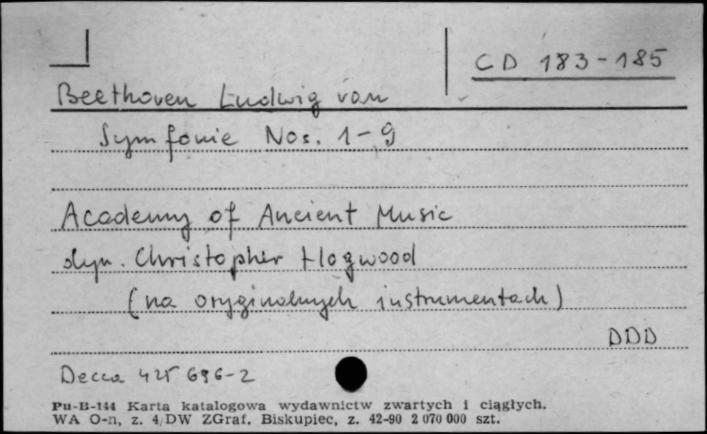 CD 183-185
Beethoven Ludwig van
Symfonie Nos. 1-9
Academy of Ancient Music
dyr. Christopher Hogwood
(na oryginalnych instrumentach)
DDD
Decca 425 696-2
Pu-B-144 Karta katalogowa wydawnictw zwartych i ciągłych.
WA O-n, z. 4/DW ZGraf. Biskupiec, z. 42-90 2 070 000 szt.